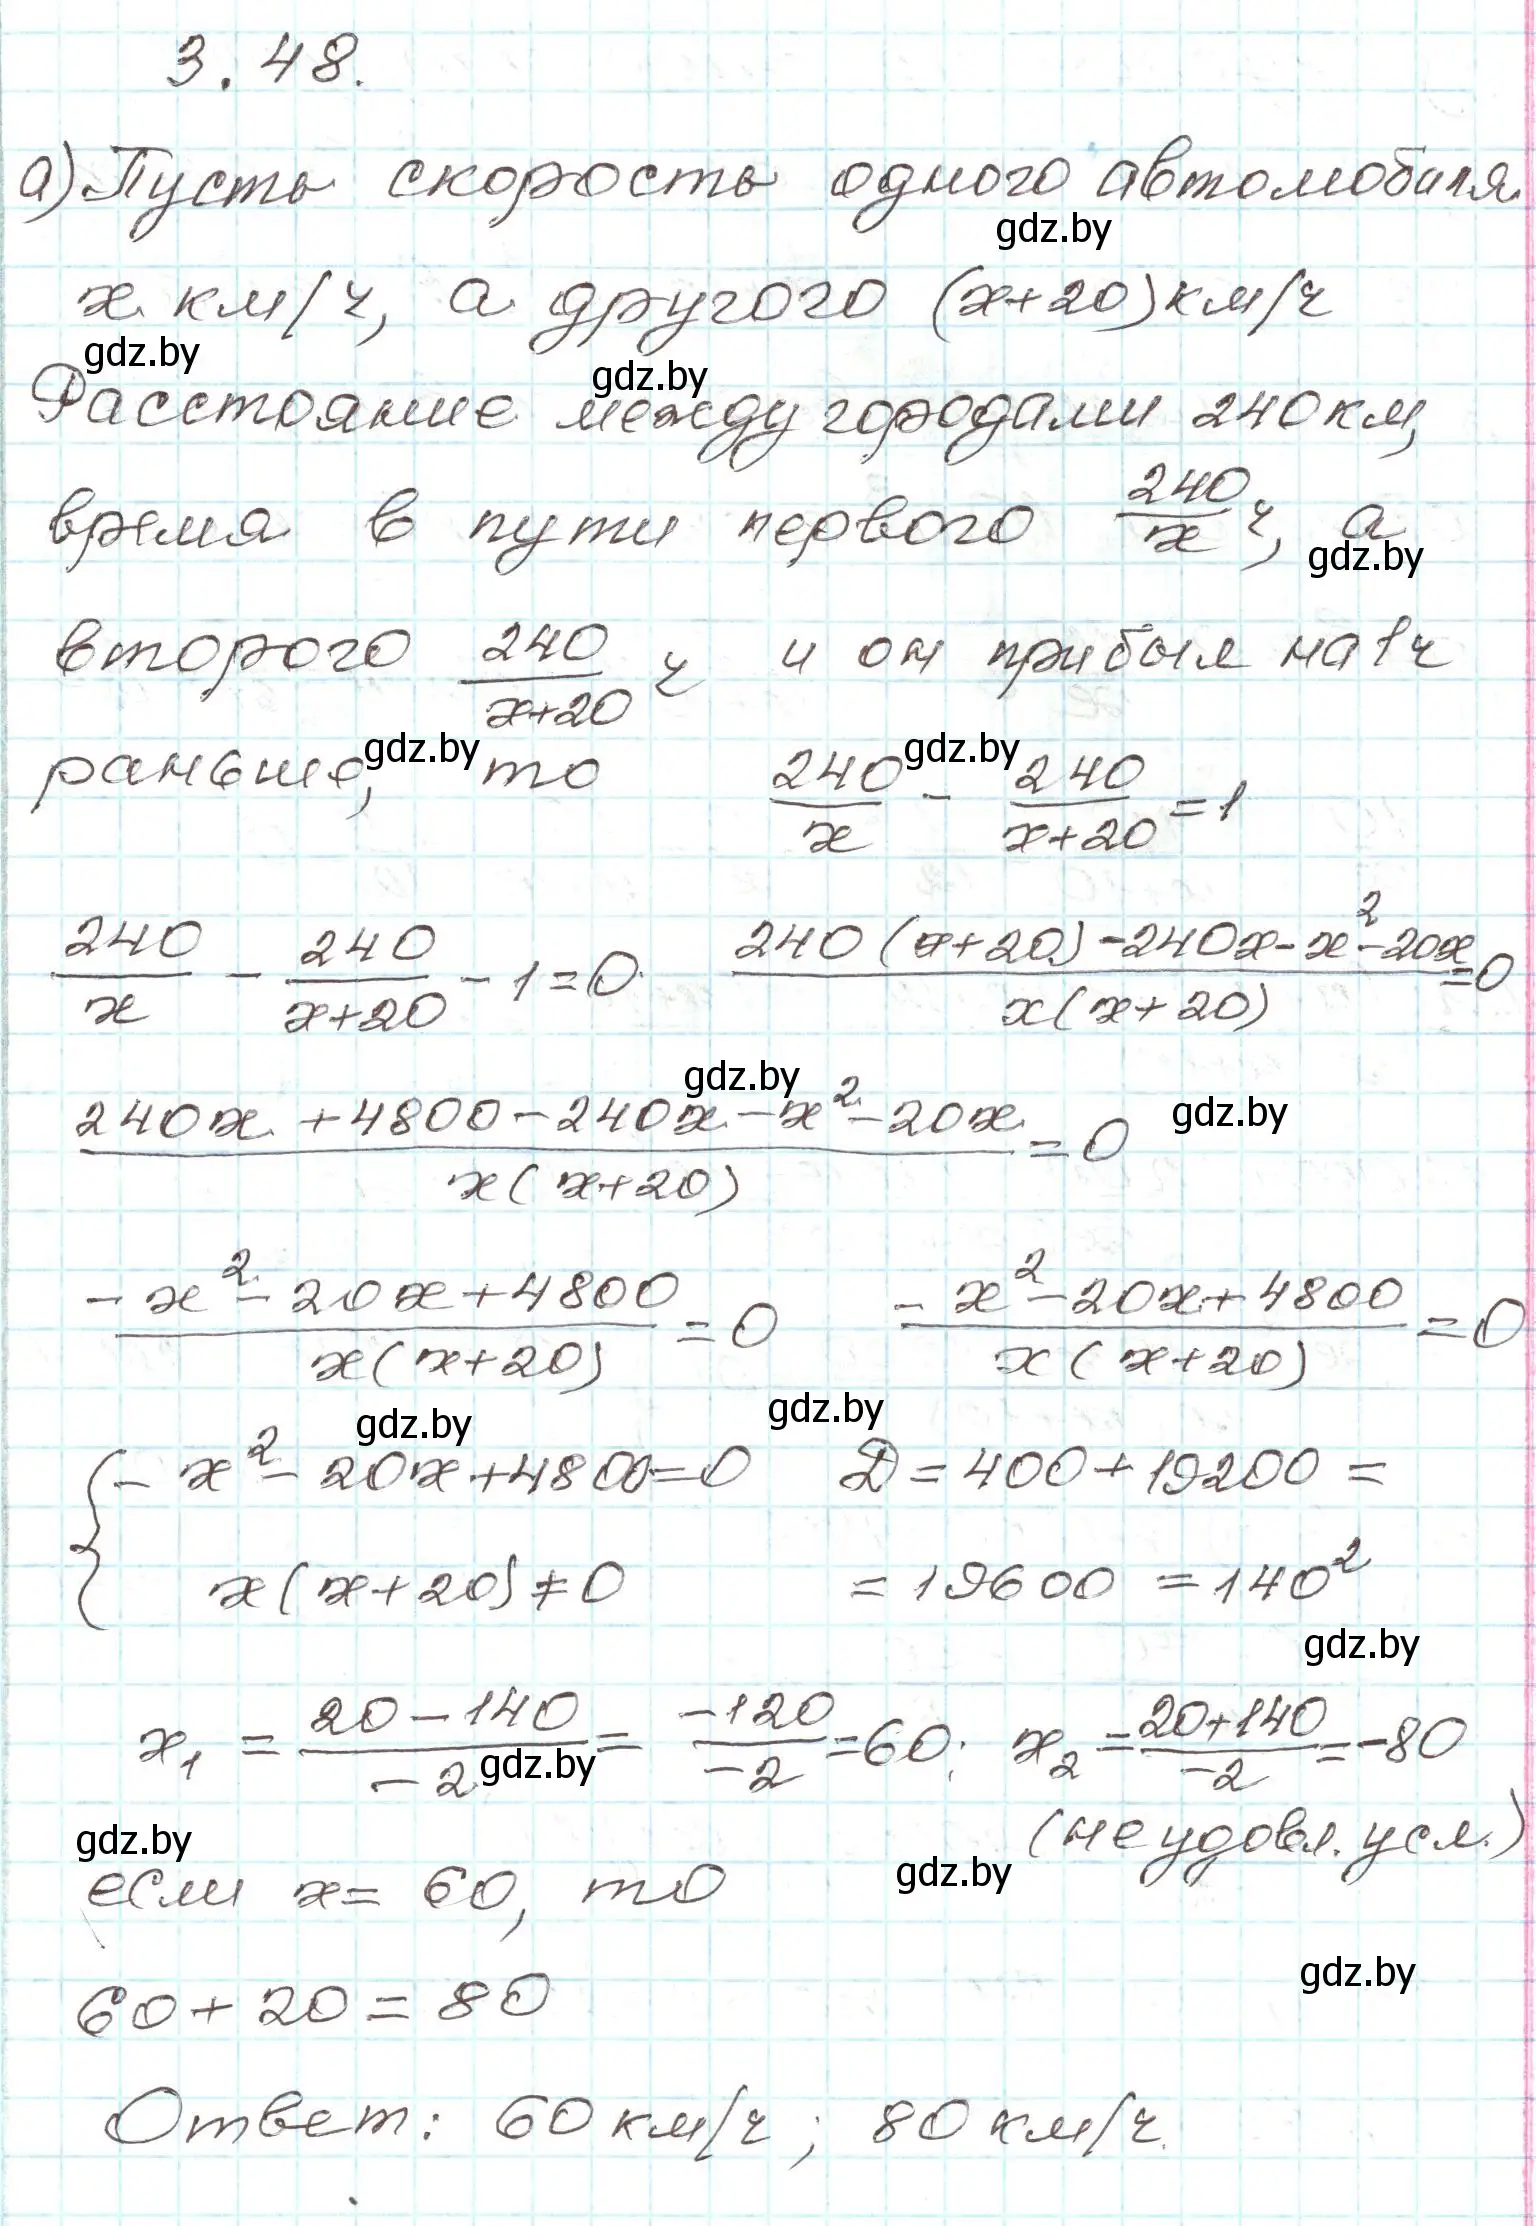 3.48.
а) Пусть скорость одного автомобиля
gdz.by
x км/ч, а другого (x+20) км/ч
gdz.by gdz.by
Расстояние между городами 240 км,
время в пути первого 240/x ч, а
gdz.by
второго 240/(x+20) ч и он прибыл на 1 ч
раньше, то 240/x - 240/(x+20) = 1
gdz.by gdz.by
240/x - 240/(x+20) - 1 = 0 (240(x+20) - 240x - x² - 20x)/(x(x+20)) = 0
gdz.by gdz.by
(240x + 4800 - 240x - x² - 20x)/(x(x+20)) = 0
(-x² - 20x + 4800)/(x(x+20)) = 0 (-x² - 20x + 4800)/(x(x+20)) = 0
gdz.by gdz.by
{ -x² - 20x + 4800 = 0 D = 400 + 19200 =
x(x+20) ≠ 0 = 19600 = 140²
gdz.by
x₁ = (20 - 140)/(-2) = (-120)/(-2) = 60; x₂ = (20+140)/(-2) = -80
gdz.by
gdz.by (не удовл. усл.)
gdz.by
если x = 60, то
gdz.by
60 + 20 = 80
Ответ: 60 км/ч; 80 км/ч.